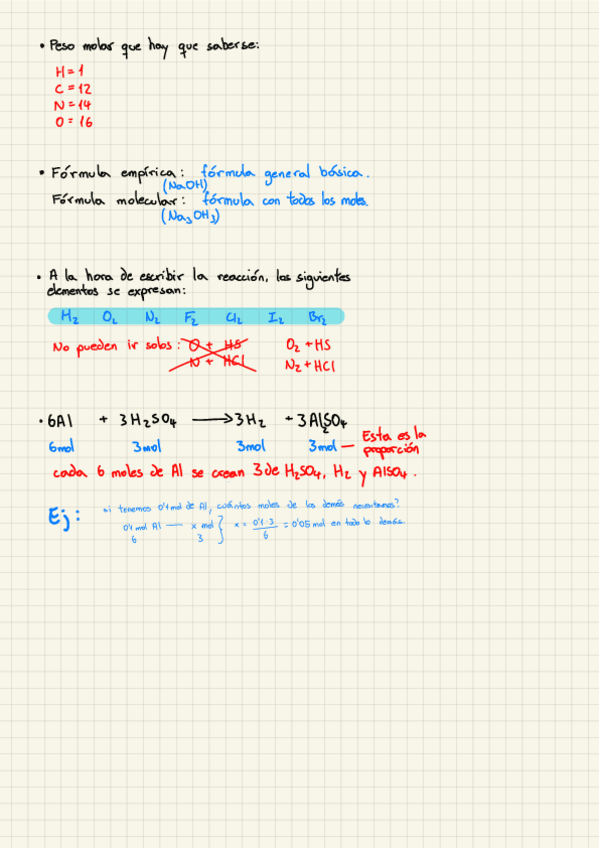 • Peso molar que hay que saberse:
H = 1
C = 12
N = 14
O = 16
• Fórmula empírica: fórmula general básica.
(NaOH)
Fórmula molecular: fórmula con todos los moles.
(Na₃OH₃)
• A la hora de escribir la reacción, los siguientes
elementos se expresan:
H₂ O₂ N₂ F₂ Cl₂ I₂ Br₂
No pueden ir solos: O + HS O₂ + HS
N + HCl N₂ + HCl
• 6Al + 3H₂SO₄ → 3H₂ + 3Al₂SO₄
6mol 3mol 3mol 3mol — Esta es la
proporción
cada 6 moles de Al se crean 3 de H₂SO₄, H₂ y AlSO₄.
Ej: si tenemos 0'1 mol de Al, cuántos moles de los demás necesitamos?
0'1 mol Al — x mol } x = 0'1·3 / 6 = 0'05 mol en todo lo demás.
6 3